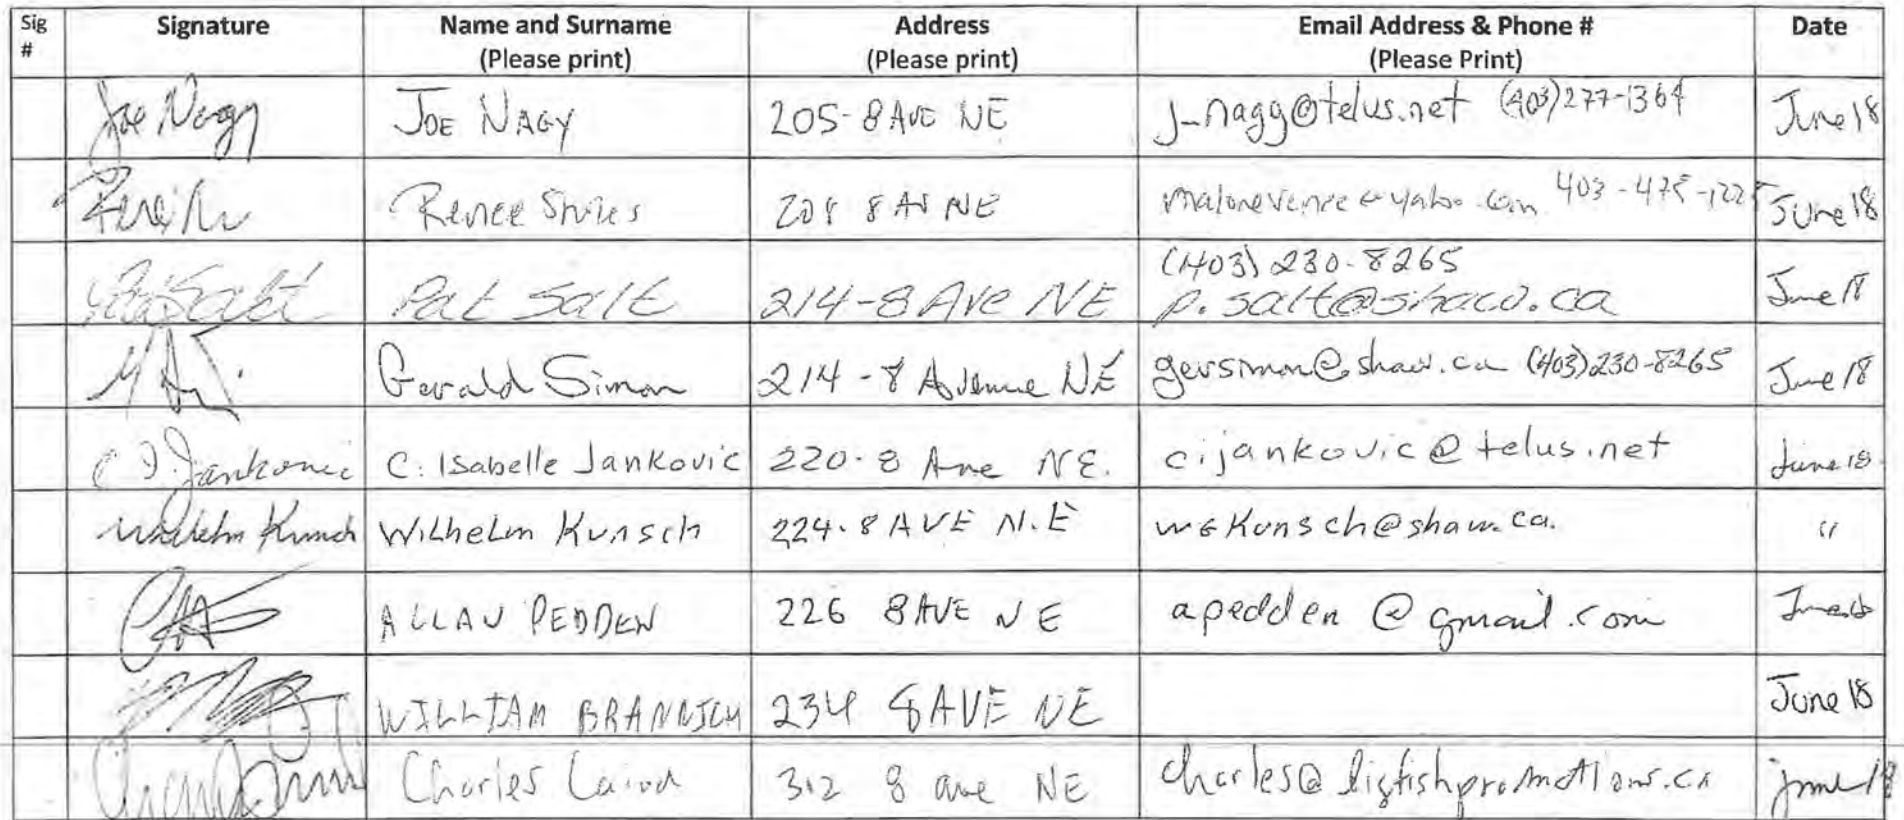 Sig # Signature Name and Surname (Please print) Address (Please print) Email Address & Phone # (Please Print) Date
Joe Nagy JOE NAGY 205-8 AVE NE j-nagy@telus.net (403)277-1364 June 18
Renee 208 8 AV NE 403-475- June 18
Pat Salt Pat Salt 214-8 Ave NE (403) 230-8265 p.salt@shaw.ca June 18
Gerald Simon 214-8 Avenue NE gersimon@shaw.ca (403)230-8265 June 18
C I Jankovic C. Isabelle Jankovic 220-8 Ave NE. cijankovic@telus.net June 18
Wilhelm Kunsch WiLheLm Kunsch 224-8 AVE N.E wgKunsch@shaw.ca. "
ALLAN PEDDEN 226 8 AVE NE apedden @gmail.com June
WILLIAM 234 8 AVE NE June 18
Charles Laird 312 8 ave NE charles@bigfishpromotions.ca june 18